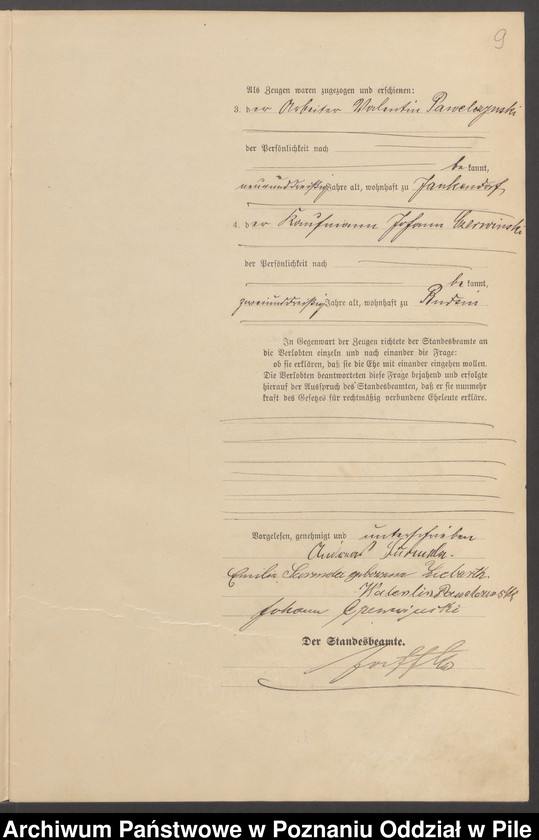 9
Als Zeugen waren zugezogen und erschienen:
3. der Arbeiter Valentin Pawelczynski
der Persönlichkeit nach
be kannt,
neununddreißig Jahre alt, wohnhaft zu Jankendorf
4. der Kaufmann Johann Czerwinski
der Persönlichkeit nach
be kannt,
zweiunddreißig Jahre alt, wohnhaft zu
In Gegenwart der Zeugen richtete der Standesbeamte an
die Verlobten einzeln und nach einander die Frage:
ob sie erklären, daß sie die Ehe mit einander eingehen wollen.
Die Verlobten beantworteten diese Frage bejahend und erfolgte
hierauf der Ausspruch des Standesbeamten, daß er sie nunmehr
kraft des Gesetzes für rechtmäßig verbundene Eheleute erkläre.
Vorgelesen, genehmigt und unterschrieben
Andreas
Emilie geborene
Walentin
Johann Czerwinski
Der Standesbeamte.
Archiwum Państwowe w Poznaniu Oddział w Pile